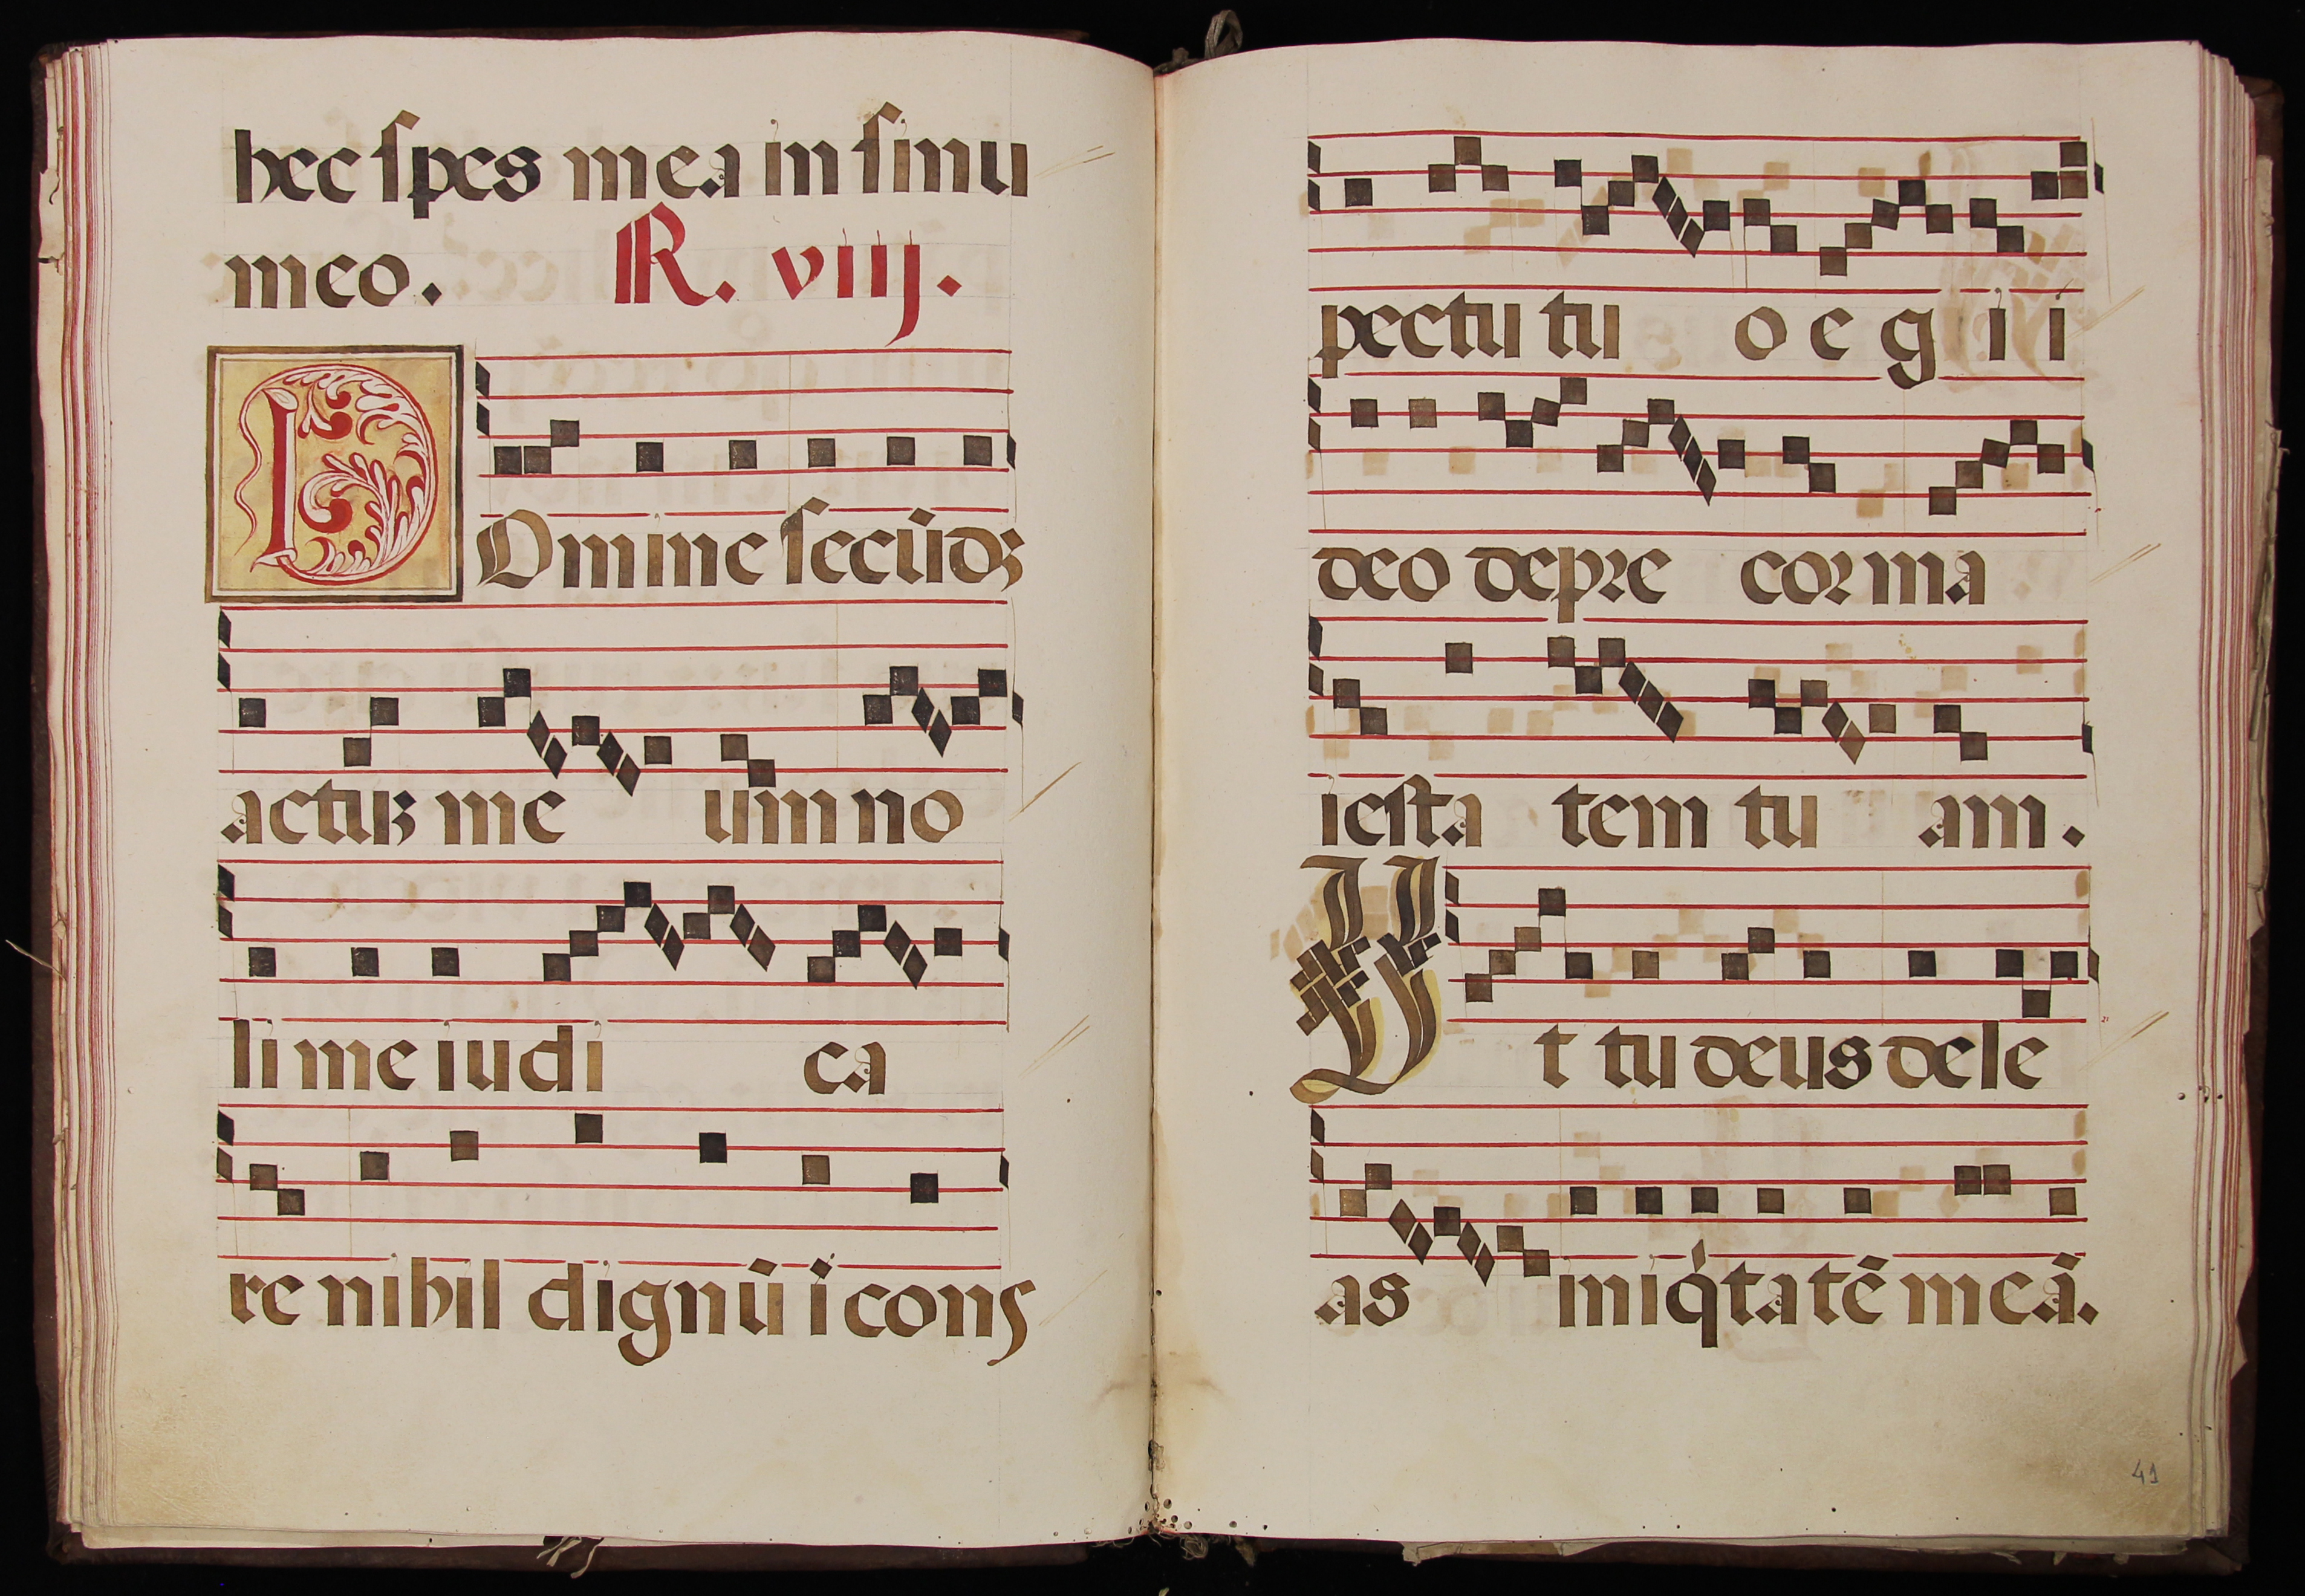 hec spes mea in sinu
meo. R. viij.
DOmine secūdȝ
actuȝ me um no
li me iudi ca
re nihil dignū ī cons
pectu tu o e g i i
deo depre cor ma
iesta tem tu am.
Vt tu deus dele
as iniq̇tatē meā.
41